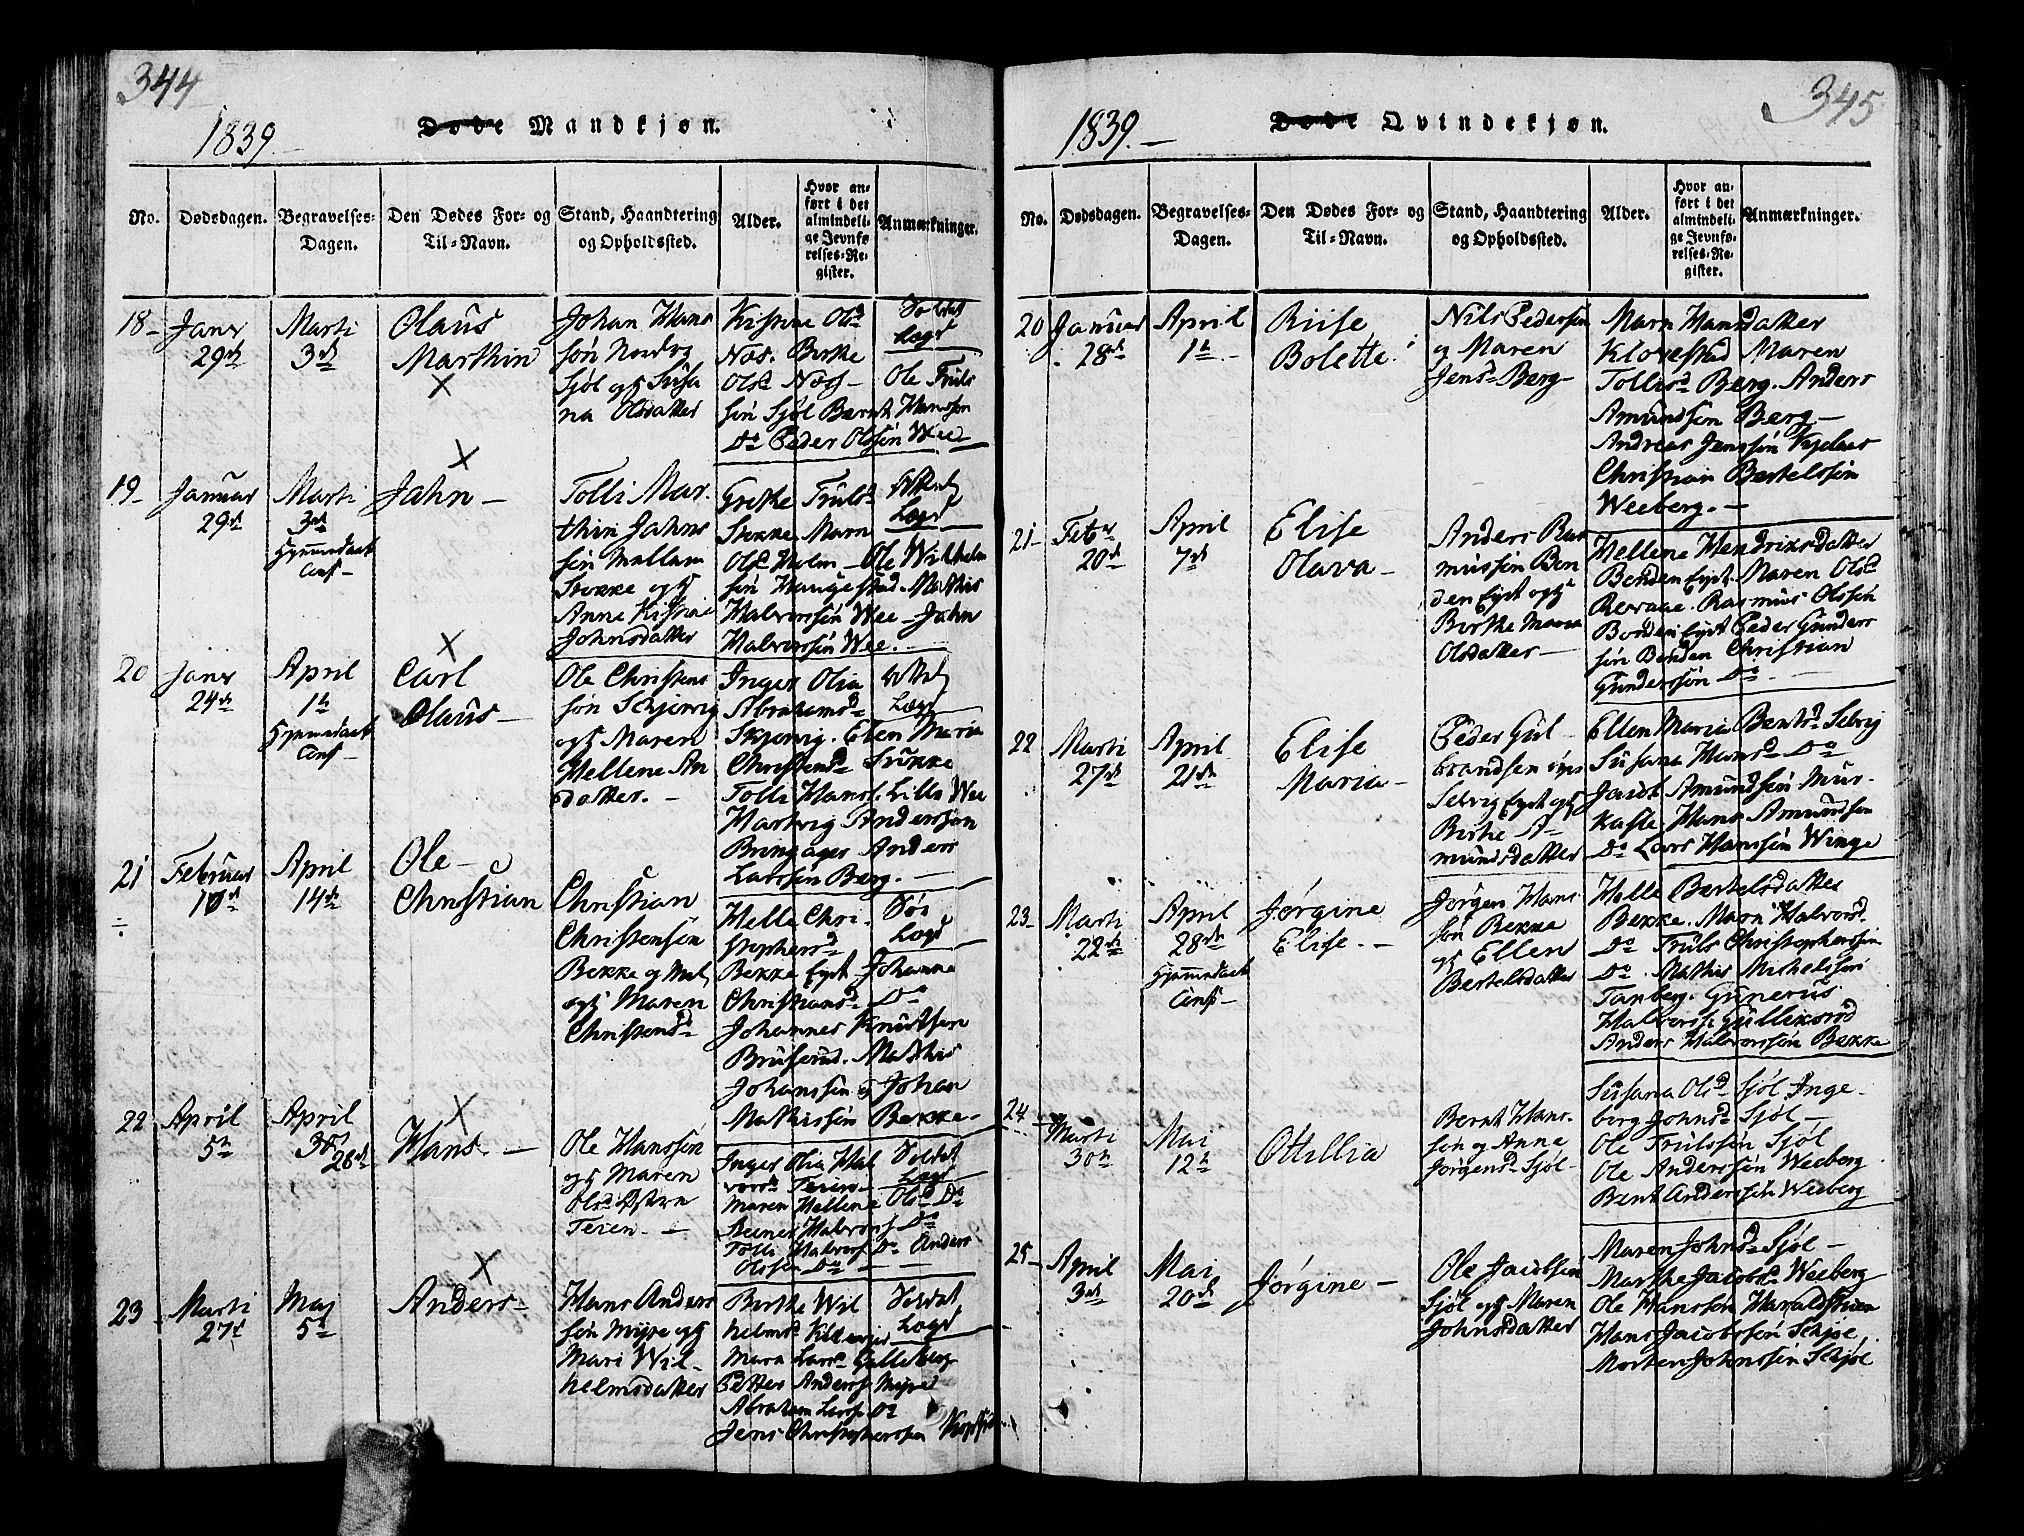 344
1839.
Døde Mandkjøn.
No.
Dødsdagen.
Begravelses-Dagen.
Den Dødes For- og Til-Navn.
Stand, Haandtering og Opholdssted.
Alder.
Hvor anført i det almindelige Jevnførelses-Register.
Anmærkninger.
18
Janr 29de
Marti 3de
Olaus
Marthin
Johan Hans
søn
Sjøl og h Susa
na Olsdatter
Kistine Olsd
Næs. Birthe
Olsd Næss
Ole Truls
søn Sjøl Bernt Hanssøn
Do Peder Olssøn Wee
19
Januar 29de
Marti 3de
Hjemmedøbt
Jahn
Tolli Mar
thin Jahns
søn Mellam
Stokke og h
Anne Kistine
Johnsdatter
Grethe Truls
Stokke Marn
Olsd Holm Ole Wilhelm
søn Haugestad Mathis
Halvorssøn Wee Jahn
Halvorssøn Wee
20
Janr 24de
April 1te
Hjemmedøbt
Carl
Olaus
Ole Christens
søn Schjervig
og h Maren
Hellene An
datter.
Inger Olia
Abrahamsd
Skjervig. Elen Maria
Christensd
Tolli Hanss. Lille Wee
Hartvig Anderssøn
Bringager Anders
Larssøn Berg.
21
Februar 10de
April 14de
Ole
Christian
Christian
Christensøn
Bekke
og h Maren
Christensd
Helle Chri
stophersd
Bekke Eyet Johanne
Christiansd Do
Johannes Knudsen
Bruserud. Mathis
Johanssøn og Johan
Mathissøn Bekke
22
April 5te
April 28de
Hans
Ole Hanssøn
og h Maren
Olsd Østern
Teien.
Inger Olia Hal
vorsd Teien
Maren Hellene Olsd Do
Steener Halvors Do
Tolli Halvors Do Anders
Olssen Do
23
Marti 27de
Maj 5te
Anders
Hans Anders
søn Myre og h
Mari Wil
helmsdatter
Birthe Wil
helmsd
Mara Larsd Gulleberg
Petter Anderss Myre
Abraham Larss Do
Jens Christopherssen
345
1839.
Døde Qvindekjøn.
No.
Dødsdagen.
Begravelses-Dagen.
Den Dødes For- og Til-Navn.
Stand, Haandtering og Opholdssted.
Alder.
Hvor anført i det almindelige Jevnførelses-Register.
Anmærkninger.
20
Januar 28de
April 1te
Riise
Bolette.
Nils Pedersøn
og Maren
Jensd Berg
Marn Hansdatter
Klovestad Maren
Tollisd Berg. Anders
Amundssøn Berg
Andreas Jenssøn
Christian Bertelssøn
Weeberg.
21
Febr 20de
April 7de
Elise
Olava
Anders Ras
mussøn Ben
den Eyet og h
Birthe Maria
Olsdatter
Hellene Hendriksdatter
Benden Eyet. Maren Olsd
Revaae. Rasmus Olssøn
Benden Eyet Peder Gunders
søn Benden Christian
Gunderssøn Do
22
Marti 27de
April 21de
Elise
Maria
Peder Gul
brandsen
Selvig Eyet og h
Birthe A
mundsdatter
Ellen Maria Bentsd Selvig
Susana Hansd Do
Jacob Amundsøn Mur
kasle Hans Amundsøn
Do Lars Hanssøn Winge
23
Marti 22de
April 28de
Hjemmedøbt
Jørgine
Elise.
Jørgen Hans
søn Bekke
og h Ellen
Bertelsdatter
Helle Bertelsdatter
Bekke. Marn Halvorsd
Do Truls Christopherssøn
Do. Mathis Michelssøn
Tanberg. Gunerus
Halvorss Gulliksrød
Anders Halvorssøn Bekke
24
Marti 30te
Mai 12te
Ottillia
Bernt Hans
søn og Anne
Jørgensd Sjøl
Susana Olsd Sjøl Inge
berg Johnsd Sjøl
Ole Trulssøn Sjøl
Ole Anderssøn Weeberg
Bent Anderssøn Weeberg
25
April 3de
Mai 20de
Jørgine
Ole Jacobsen
Sjøl og h Maren
Johnsdatter
Maren Johnsd Sjøl
Marthe Jacobsd Weeberg
Ole Hanssøn Haraldstuen
Hans Jacobssøn Schjøl
Morten Johnssøn Schjøl